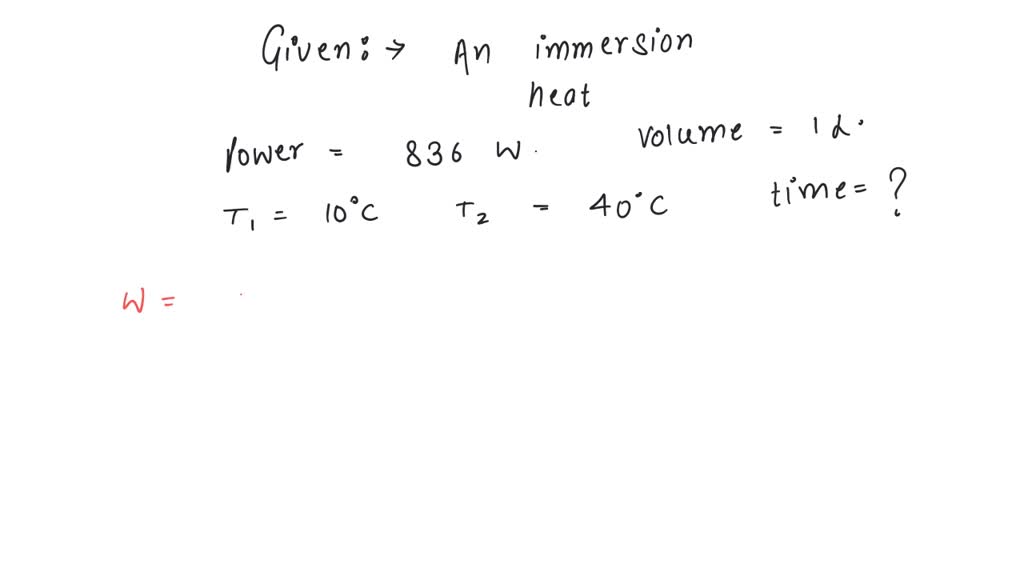 Given:→ An immersion
heat
Power = 836 W. volume = 1 L.
T₁ = 10°C T₂ = 40°C time = ?
W =